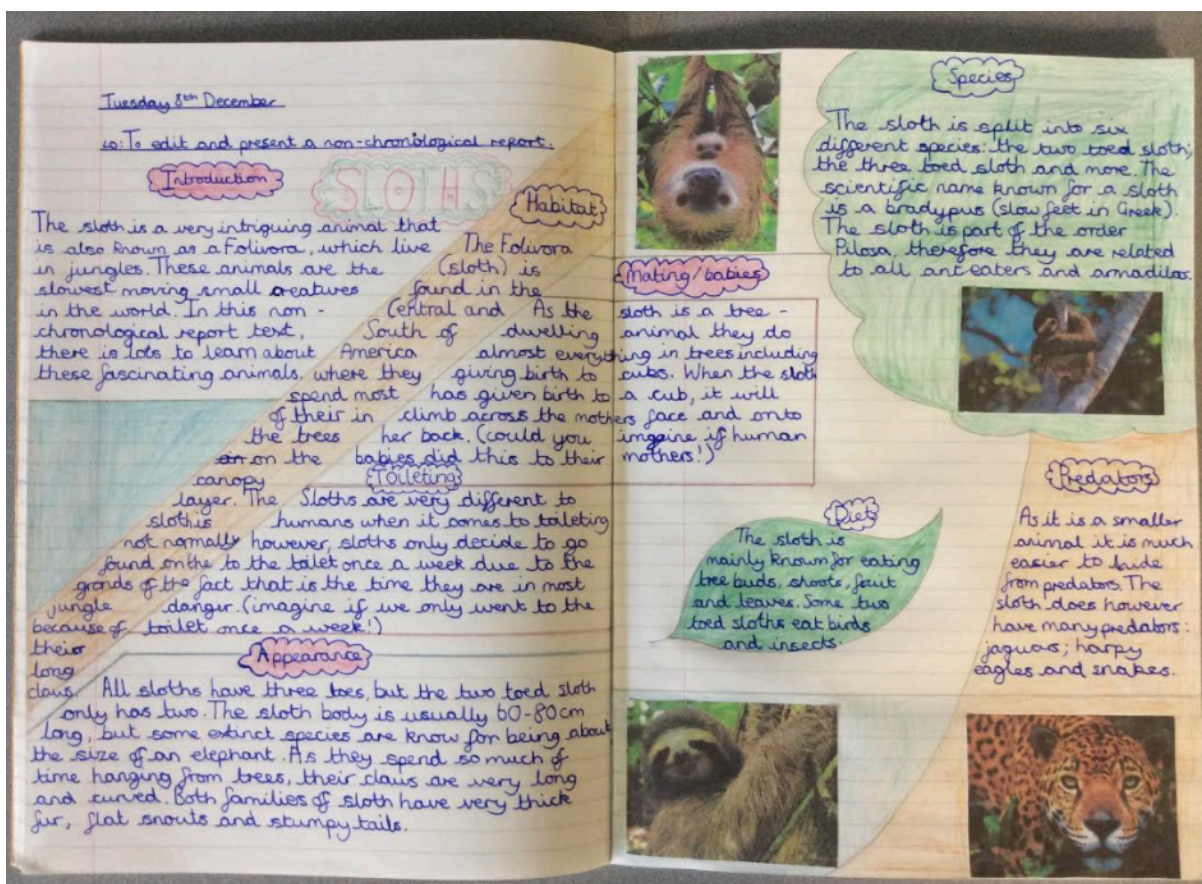 Tuesday 8th December
LO: To edit and present a non-chronological report.
SLOTHS
Introduction
The sloth is a very intriguing animal that
is also known as a Folivora, which live
in jungles. These animals are the
slowest moving small creatures
in the world. In this non -
chronological report text,
there is lots to learn about
these fascinating animals.
Habitat
The Folivora
(sloth) is
found in the
Central and
South of
America
where they
spend most
of their in
the trees
on the
canopy
layer. The
sloth is
not normally
found on the
grands of the
jungle
because of
their
long
claws.
Mating/babies
As the sloth is a tree -
dwelling animal they do
almost everything in trees including
giving birth to cubs. When the sloth
has given birth to a cub, it will
climb across the mothers face and onto
her back. (could you imgaine if human
babies did this to their mothers!)
Toileting
Sloths are very different to
humans when it comes to toileting
however, sloths only decide to go
to the toilet once a week due to the
fact that is the time they are in most
danger. (imagine if we only went to the
toilet once a week!)
Appearance
All sloths have three toes, but the two toed sloth
only has two. The sloth body is usually 60-80cm
long, but some extinct species are know for being about
the size of an elephant. As they spend so much of
time hanging from trees, their claws are very long
and curved. Both families of sloth have very thick
fur, flat snouts and stumpy tails.
Species
The sloth is split into six
different species: the two toed sloth;
the three toed sloth and more. The
scientific name known for a sloth
is a bradypus (slow feet in Greek).
The sloth is part of the order
Pilosa, therefore they are related
to all anteaters and armadilos.
Diet
The sloth is
mainly known for eating
tree buds, shoots, fruit
and leaves. Some two
toed sloths eat birds
and insects.
Predators
As it is a smaller
animal it is much
easier to hide
from predators. The
sloth does however
have many predators:
jaguars; harpy
eagles and snakes.